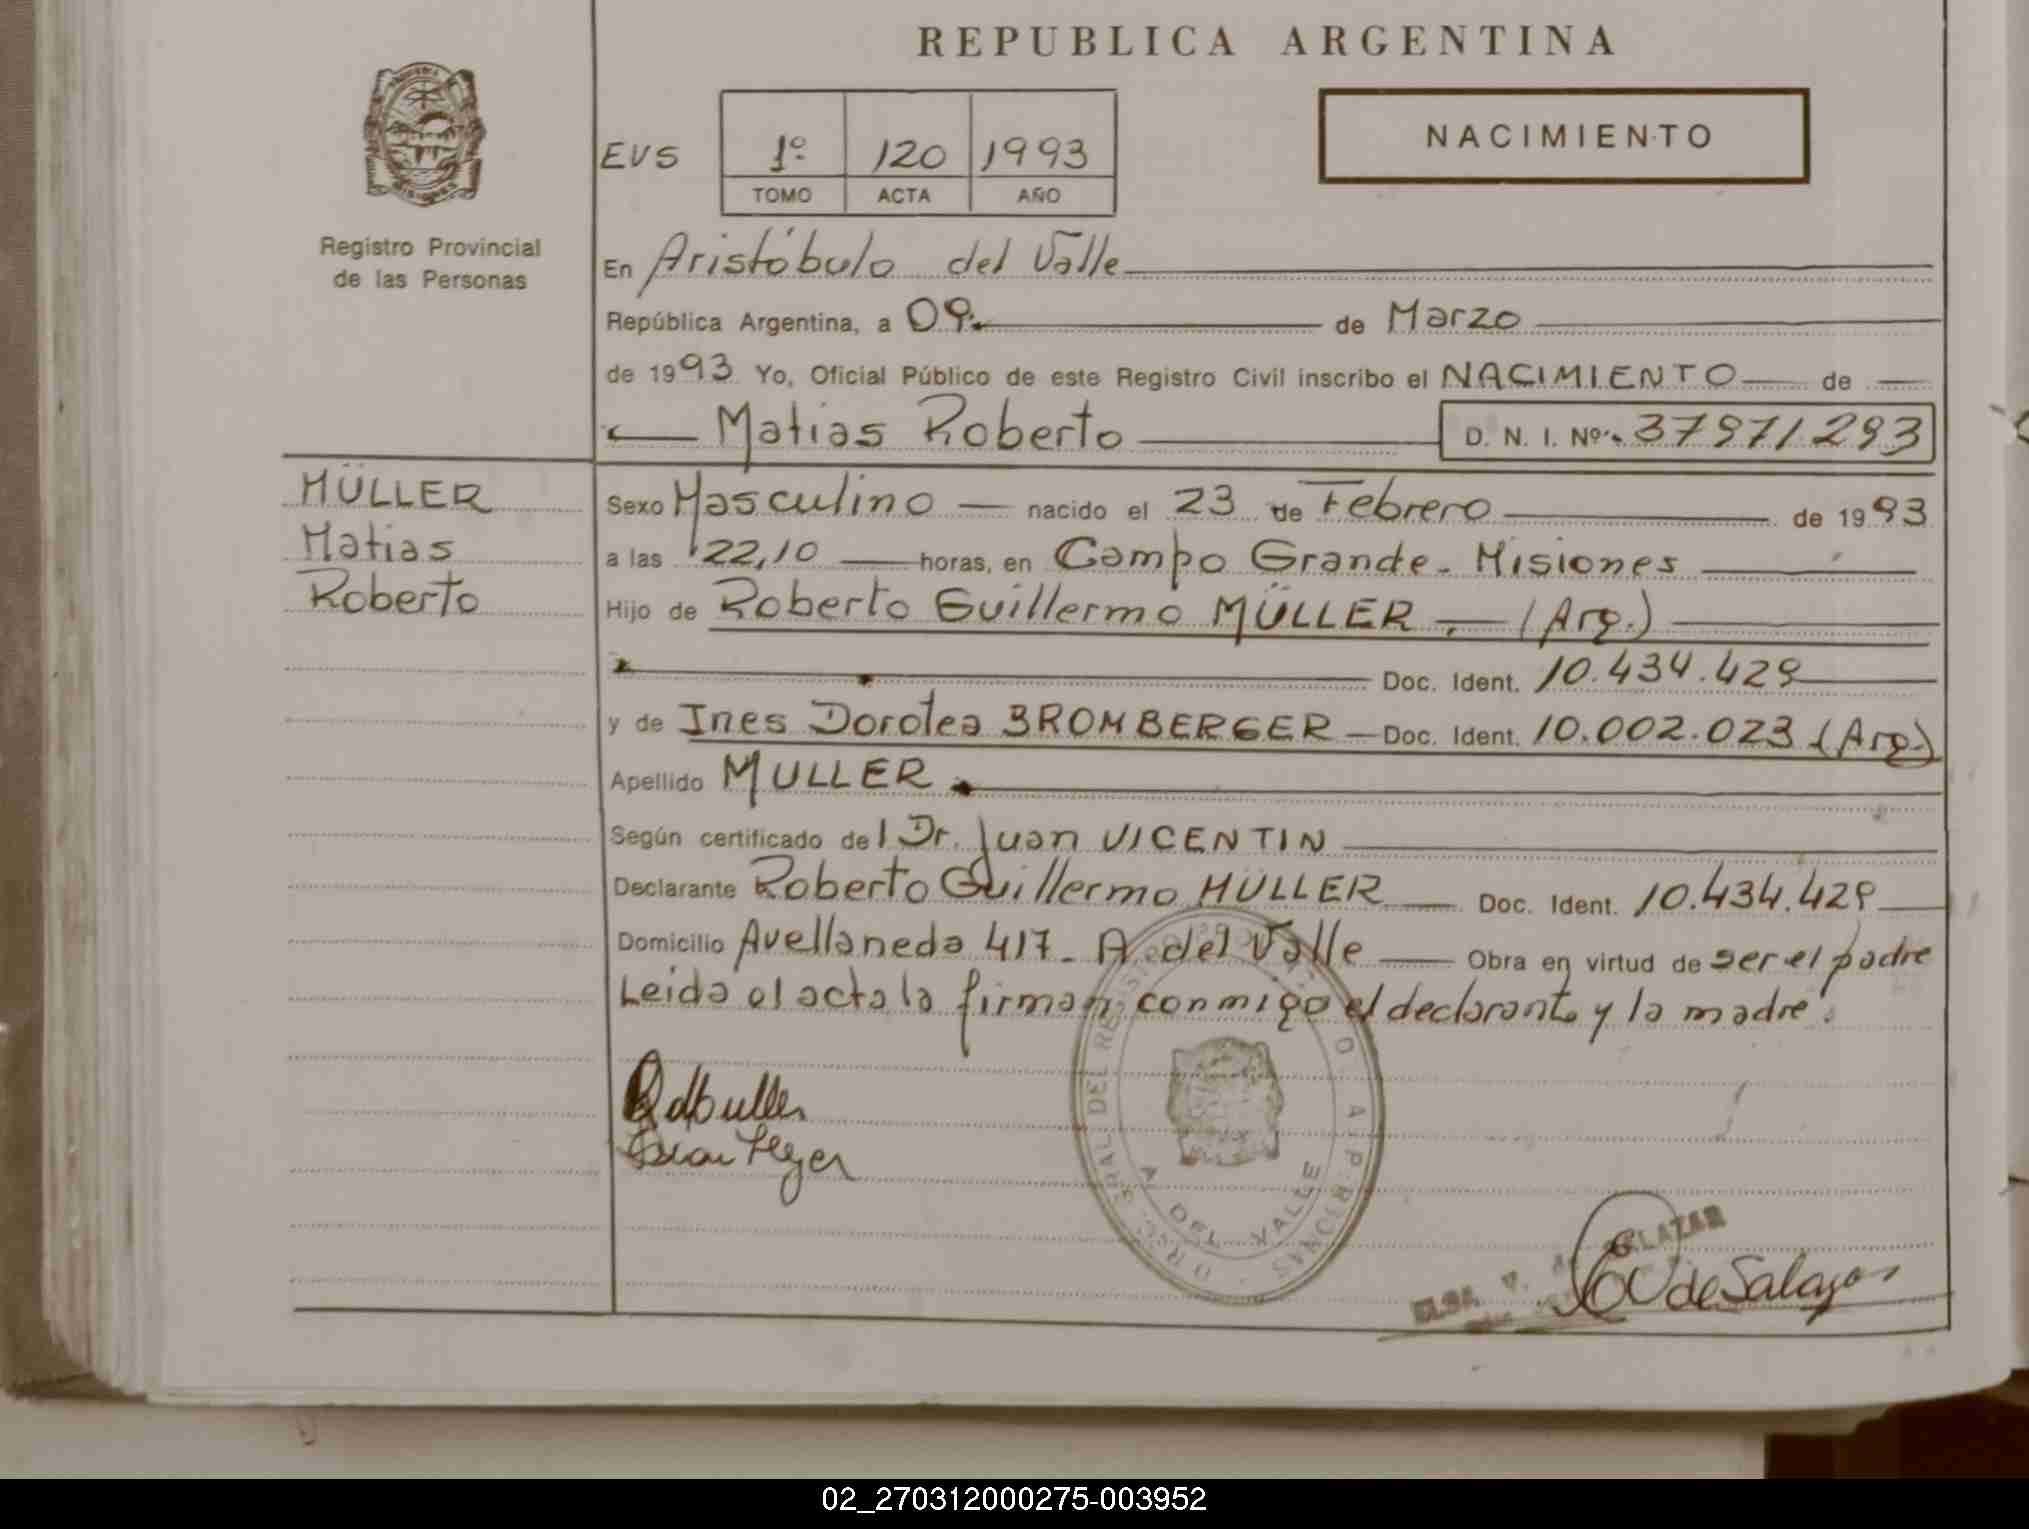 REPUBLICA ARGENTINA
NACIMIENTO
EVS 1º 120 1993
TOMO ACTA AÑO
Registro Provincial
de las Personas
En Aristóbulo del Valle
República Argentina, a 09 de Marzo
de 1993 Yo, Oficial Público de este Registro Civil inscribo el NACIMIENTO de
Matias Roberto D. N. I. Nº 37971293
MÜLLER
Matias
Roberto
Sexo Masculino nacido el 23 de Febrero de 1993
a las 22,10 horas, en Campo Grande - Misiones
Hijo de Roberto Guillermo MÜLLER. (Arg.)
Doc. Ident. 10.434.429
y de Ines Dorotea BROMBERGER Doc. Ident. 10.002.023 (Arg.)
Apellido MULLER
Según certificado del Dr. Juan VICENTIN
Declarante Roberto Guillermo MÜLLER Doc. Ident. 10.434.429
Domicilio Avellaneda 417 - A. del Valle Obra en virtud de ser el padre
Leida el acta la firman conmigo el declarante y la madre.
A DEL VALLE
ELSA V. SALAZAR
EV de Salazar
02_270312000275-003952